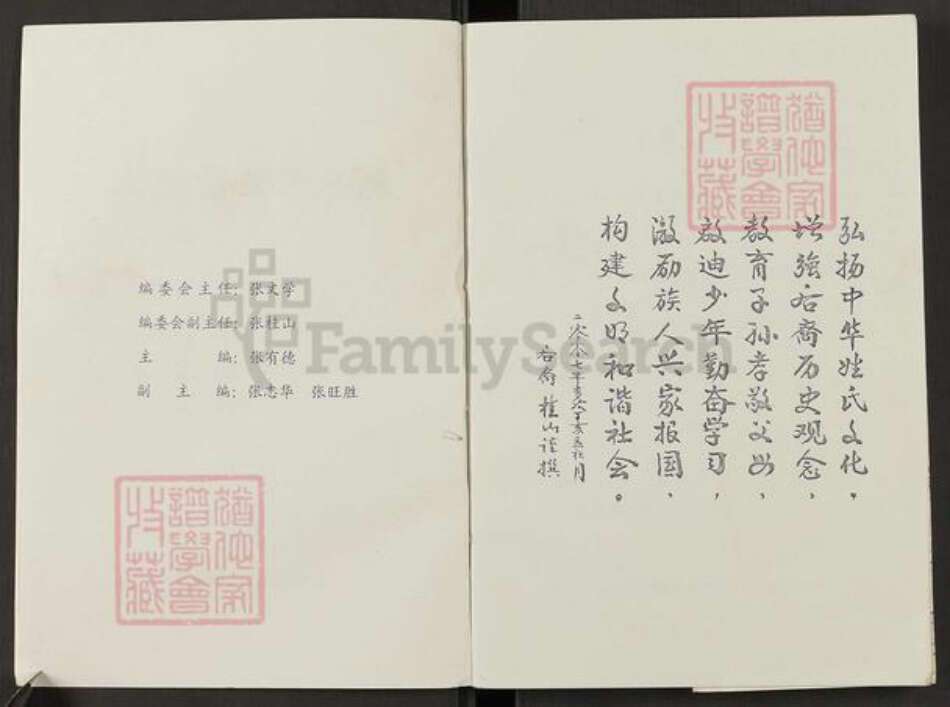 编委会主任：张文学
编委会副主任：张桂山
主编：张有德
副主编：张志华 张旺胜
弘扬中华姓氏文化。
增强后裔历史观念，
教育子孙孝敬父母，
启迪少年勤奋学习，
激励族人兴家报国，
构建文明和谐社会。
后裔 桂山谨撰
猶他家
譜學會
收藏
猶他家
譜學會
收藏
FamilySearch